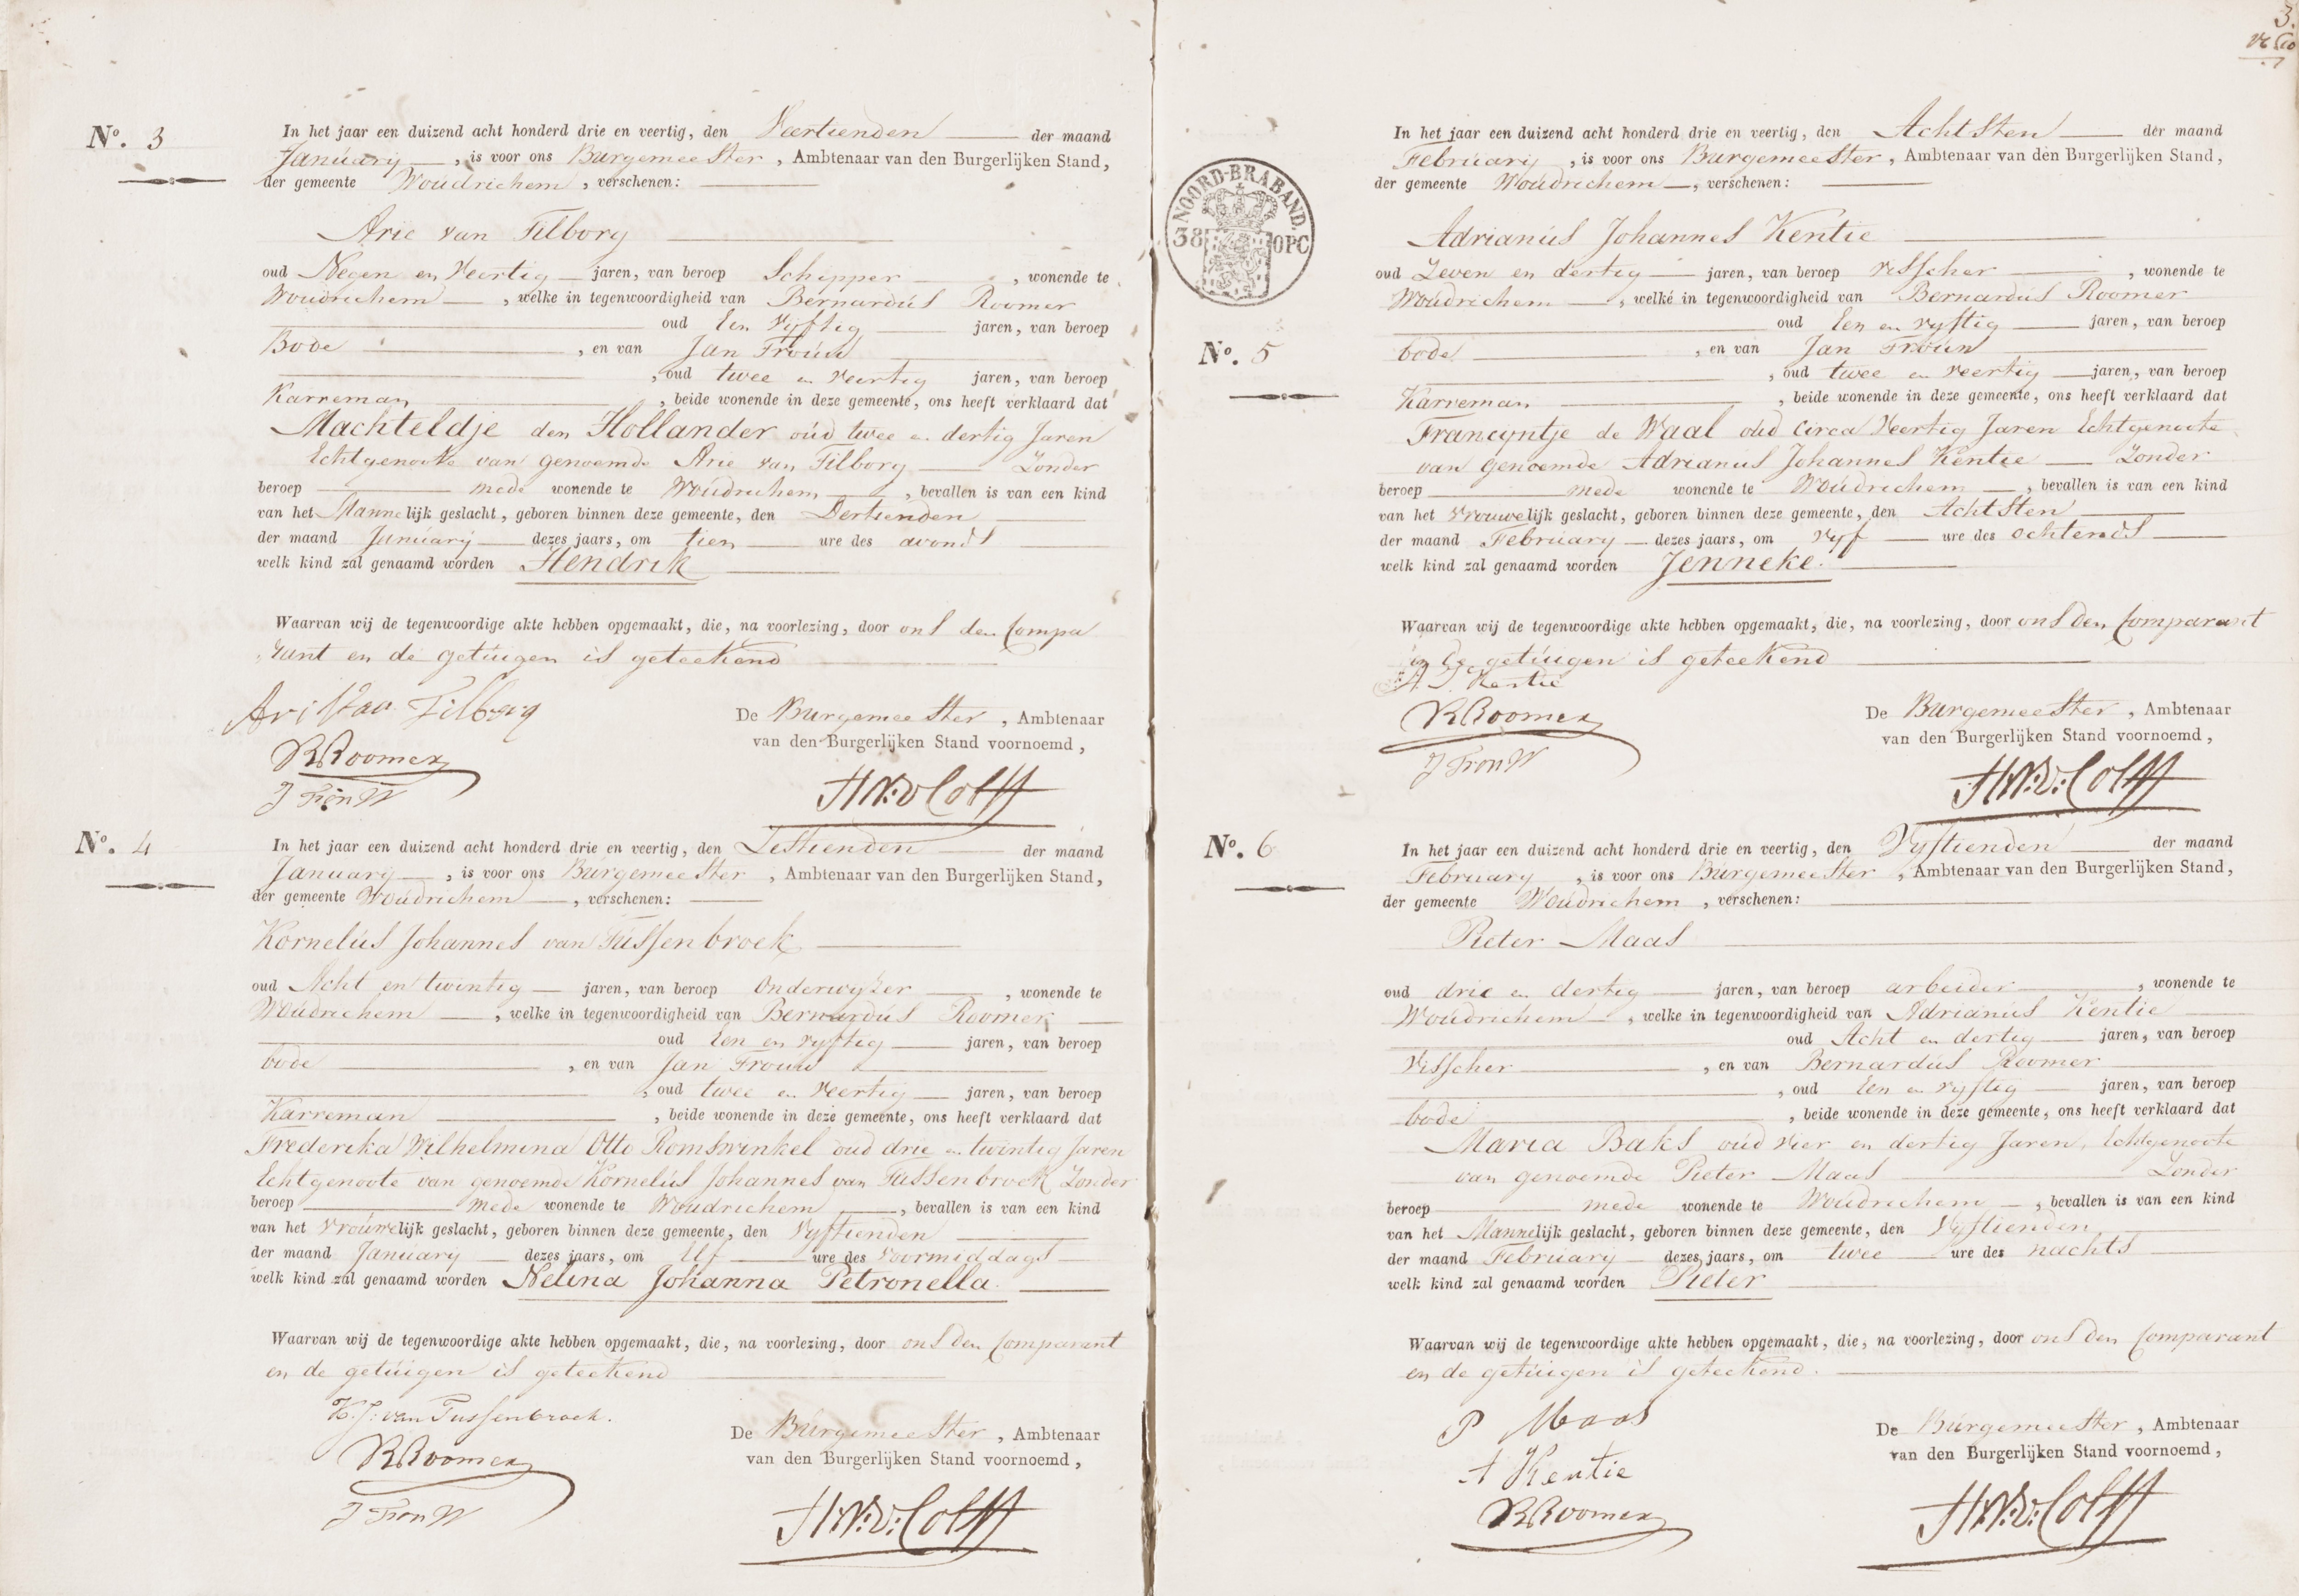 No. 3
In het jaar een duizend acht honderd drie en veertig, den Veertienden der maand
January, is voor ons Burgemeester, Ambtenaar van den Burgerlijken Stand,
der gemeente Woudrichem, verschenen:
Arie van Tilborg
oud Negen en Veertig jaren, van beroep Schipper, wonende te
Woudrichem, welke in tegenwoordigheid van Bernardus Roomer
oud Een Vyftig jaren, van beroep
Bode, en van Jan Trouw
, oud twee en Veertig jaren, van beroep
Karreman, beide wonende in deze gemeente, ons heeft verklaard dat
Machteldje den Hollander oud twee en dertig Jaren
Echtgenoote van genoemde Arie van Tilborg Zonder
beroep mede wonende te Woudrichem, bevallen is van een kind
van het Mannelijk geslacht, geboren binnen deze gemeente, den Dertienden
der maand January dezes jaars, om tien ure des avonds
welk kind zal genaamd worden Hendrik
Waarvan wij de tegenwoordige akte hebben opgemaakt, die, na voorlezing, door ons den Compa
rant en de getuigen is geteekend
Ari Van Tilborg
BRoomer
J TronW
De Burgemeester, Ambtenaar
van den Burgerlijken Stand voornoemd,
No. 4
In het jaar een duizend acht honderd drie en veertig, den Zestienden der maand
January, is voor ons Burgemeester, Ambtenaar van den Burgerlijken Stand,
der gemeente Woudrichem, verschenen:
Kornelus Johannes van Tussenbroek
oud Acht en twintig jaren, van beroep Onderwyzer, wonende te
Woudrichem, welke in tegenwoordigheid van Bernardus Roomer
oud Een en vyftig jaren, van beroep
bode, en van Jan Trouw
, oud twee en Veertig jaren, van beroep
Karreman, beide wonende in deze gemeente, ons heeft verklaard dat
Frederika Wilhelmina Otto Romswinkel oud drie en twintig Jaren
Echtgenoote van genoemde Kornelus Johannes van Tussenbroek Zonder
beroep mede wonende te Woudrichem, bevallen is van een kind
van het Vrouwelijk geslacht, geboren binnen deze gemeente, den Vyftienden
der maand January dezes jaars, om Elf ure des Voormiddags
welk kind zal genaamd worden Nelina Johanna Petronella
Waarvan wij de tegenwoordige akte hebben opgemaakt, die, na voorlezing, door ons den Comparant
en de getuigen is geteekend
K.J. van Tussenbroek.
BRoomer
J TronW
De Burgemeester, Ambtenaar
van den Burgerlijken Stand voornoemd,
3.
NOORD-BRABAND
38 OPC
No. 5
In het jaar een duizend acht honderd drie en veertig, den Achtsten der maand
February, is voor ons Burgemeester, Ambtenaar van den Burgerlijken Stand,
der gemeente Woudrichem, verschenen:
Adrianus Johannes Kentie
oud Zeven en dertig jaren, van beroep Visscher, wonende te
Woudrichem, welke in tegenwoordigheid van Bernardus Roomer
oud Een en vyftig jaren, van beroep
bode, en van Jan Trouw
, oud twee en Veertig jaren, van beroep
Karreman, beide wonende in deze gemeente, ons heeft verklaard dat
Francyntje de Waal oud circa Veertig Jaren Echtgenoote
van genoemde Adrianus Johannes Kentie Zonder
beroep mede wonende te Woudrichem, bevallen is van een kind
van het Vrouwelijk geslacht, geboren binnen deze gemeente, den Achtsten
der maand February dezes jaars, om Vyf ure des Ochtends
welk kind zal genaamd worden Jenneke.
Waarvan wij de tegenwoordige akte hebben opgemaakt, die, na voorlezing, door ons den Comparant
en de getuigen is geteekend
A.J. Kentie
BRoomer
J TronW
De Burgemeester, Ambtenaar
van den Burgerlijken Stand voornoemd,
No. 6
In het jaar een duizend acht honderd drie en veertig, den Vyftienden der maand
February, is voor ons Burgemeester, Ambtenaar van den Burgerlijken Stand,
der gemeente Woudrichem, verschenen:
Pieter Maas
oud drie en dertig jaren, van beroep arbeider, wonende te
Woudrichem, welke in tegenwoordigheid van Adrianus Kentie
oud Acht en dertig jaren, van beroep
Visscher, en van Bernardus Roomer
, oud Een en vyftig jaren, van beroep
bode, beide wonende in deze gemeente, ons heeft verklaard dat
Maria Baks oud vier en dertig Jaren, Echtgenoote
van genoemde Pieter Maas Zonder
beroep mede wonende te Woudrichem, bevallen is van een kind
van het Mannelijk geslacht, geboren binnen deze gemeente, den Vyftienden
der maand February dezes jaars, om twee ure des nachts
welk kind zal genaamd worden Pieter
Waarvan wij de tegenwoordige akte hebben opgemaakt, die, na voorlezing, door ons den Comparant
en de getuigen is geteekend.
P Maas
A Kentie
BRoomer
De Burgemeester, Ambtenaar
van den Burgerlijken Stand voornoemd,